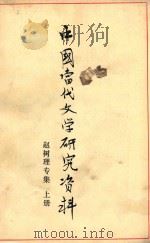 中國当代文学研究资料
赵树理专集 上册